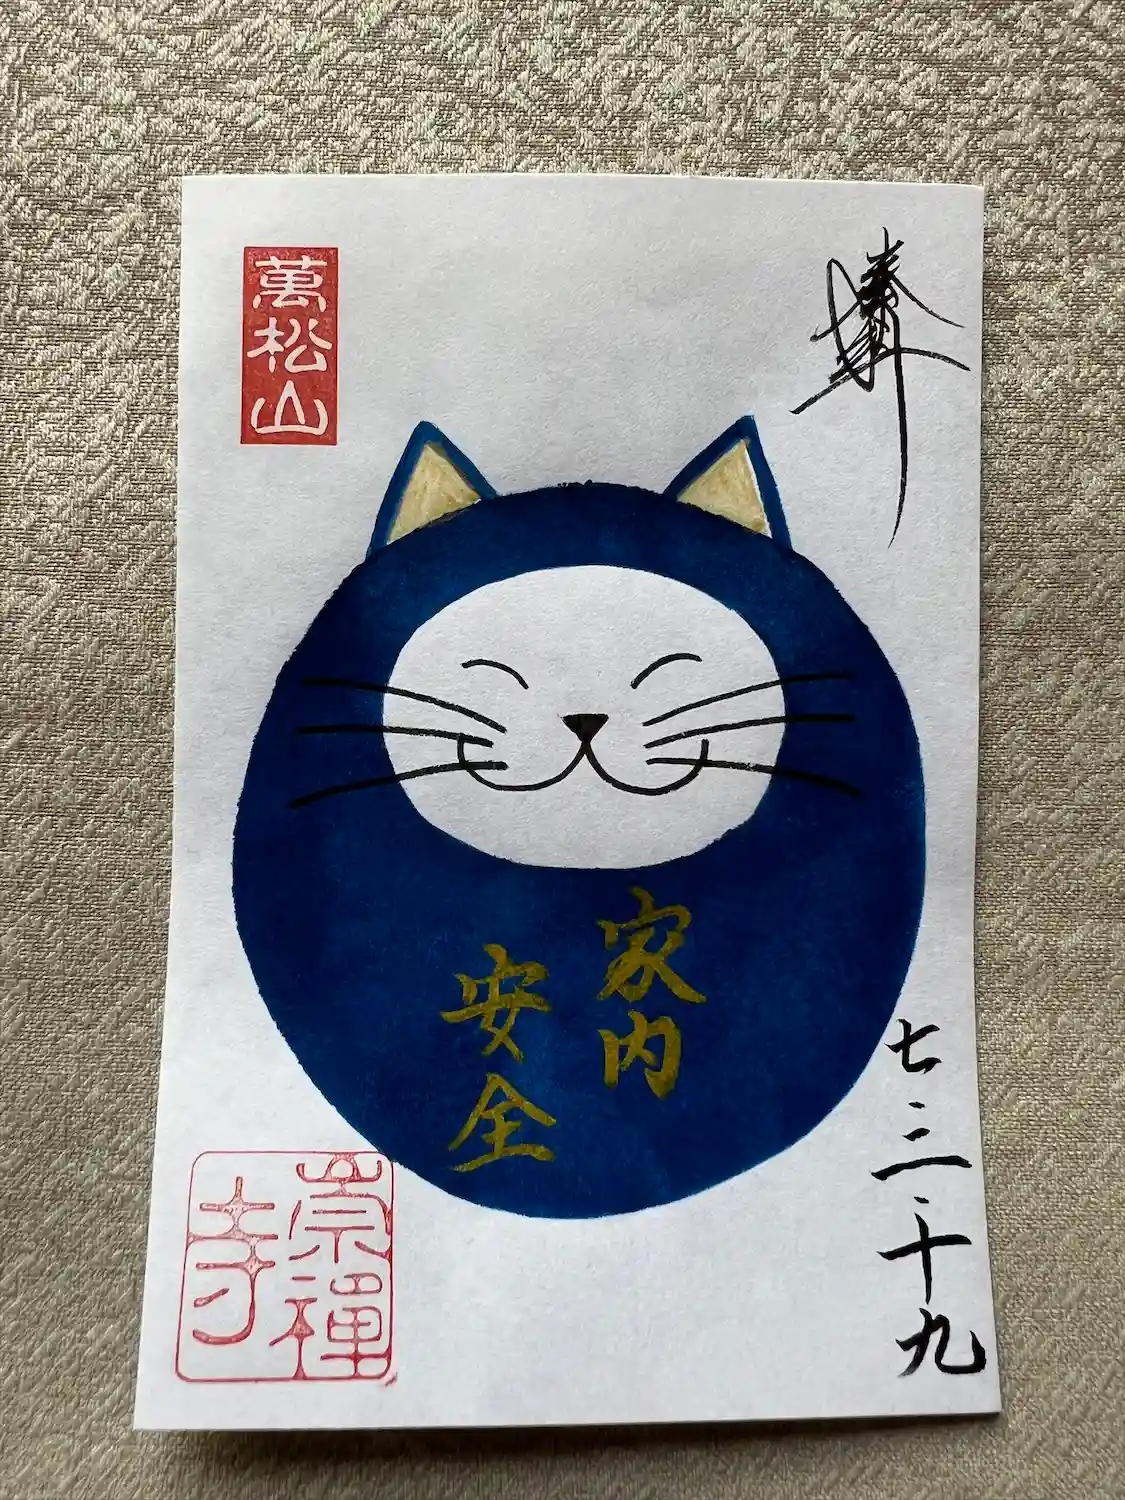 萬松山
家内
安全
七・二・十九
崇禅寺